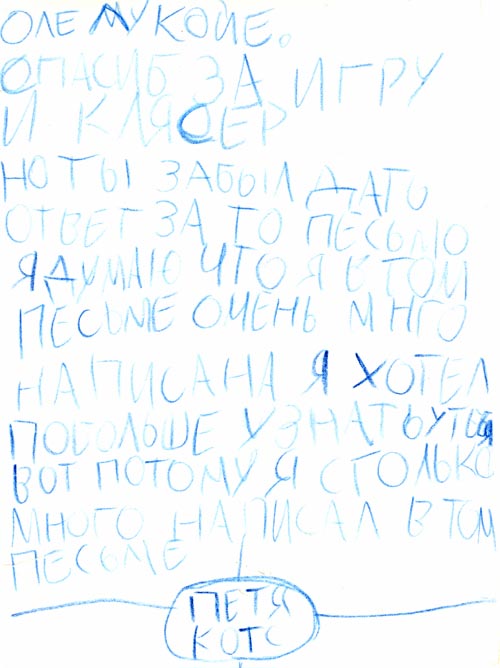 ОЛЕ ЛУКОЙЕ.
СПАСИБ ЗА ИГРУ
И КЛЯСЕР
НО ТЫ ЗАБЫЛ ДАТЬ
ОТВЕТ ЗА ТО ПЕСЬМО
Я ДУМАЮ ЧТО Я В ТОЙ
ПЕСЬМЕ ОЧЕНЬ МНГО
НАПИСАНА Я ХОТЕЛ
ПОБОЛЬШЕ УЗНАТЬ У ТЕБЯ
ВОТ ПОТОМУ Я СТОЛЬКО
МНОГО НАПИСАЛ В ТОМ
ПЕСЬМЕ
ПЕТЯ
КОТС